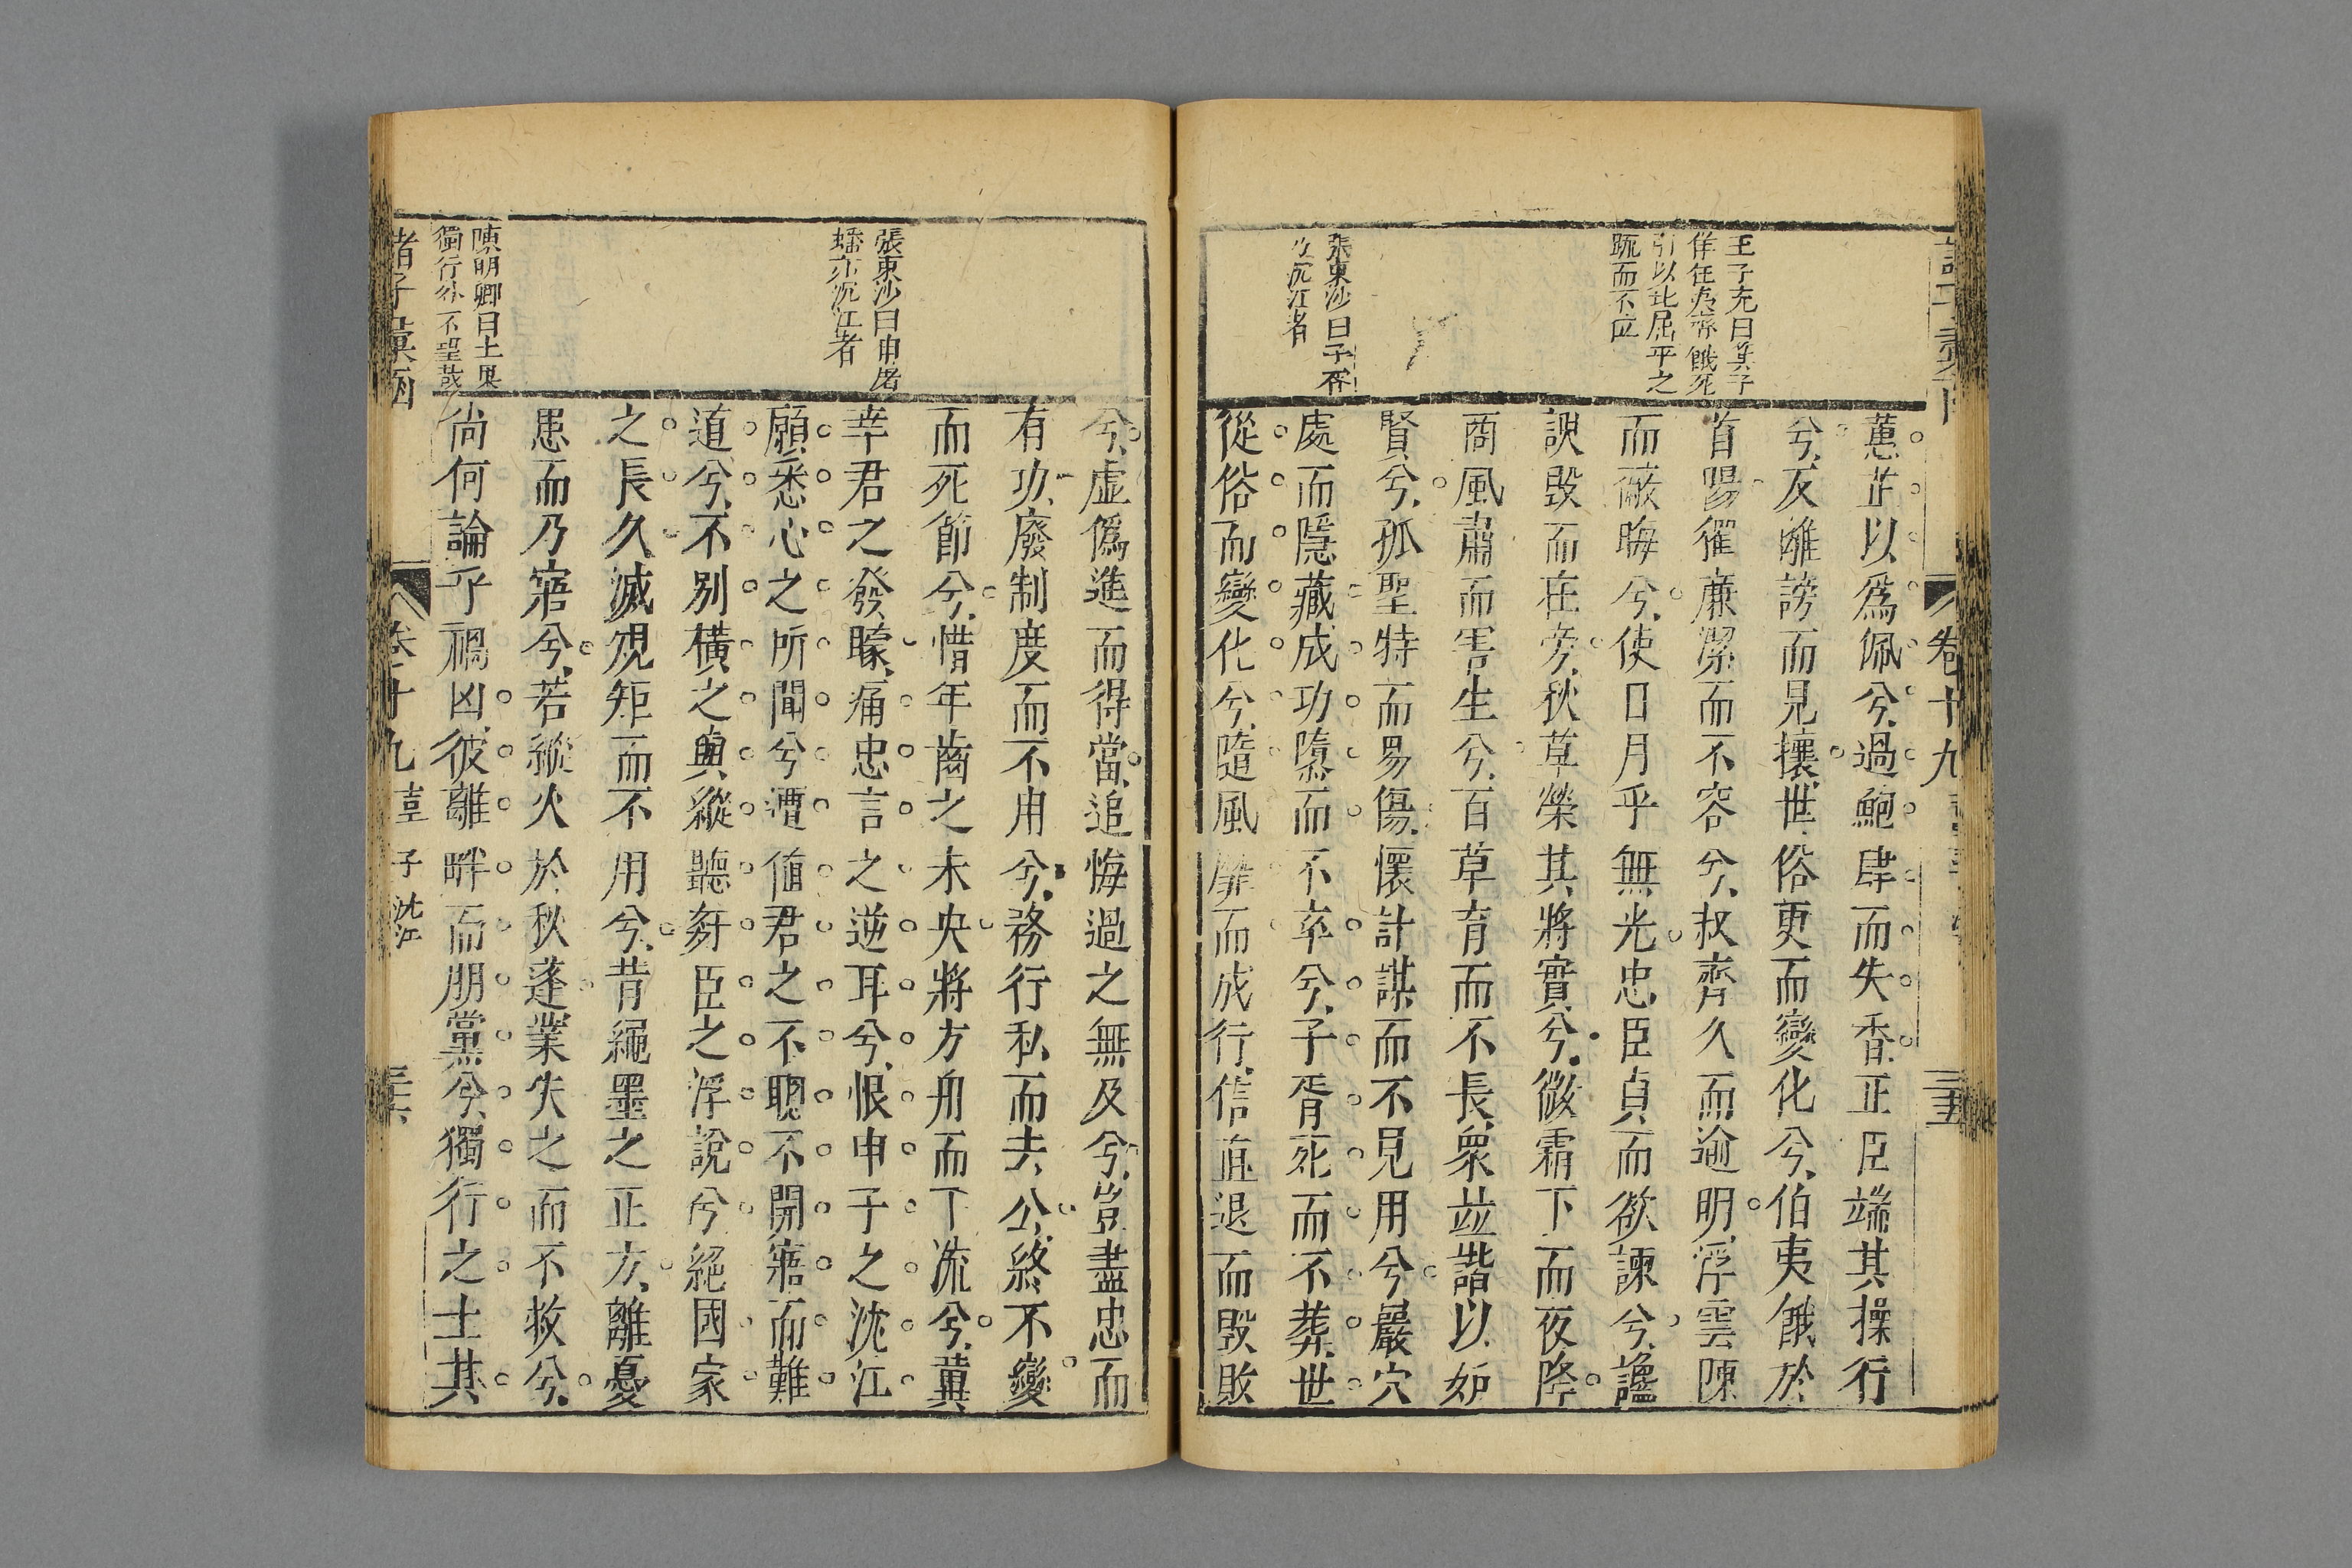 卷十九
三五
王子充曰箕子
佯狂夷齊餓死
引以比屈平之
䟽而不
張東沙曰子胥
沉江者
蕙芷以爲佩兮、過鮑肆而失香、正臣端其操行
兮、反離謗而見攘、世俗更而變化兮、伯夷餓於
首陽、獨廉潔而不容兮、叔齊久而逾明、浮雲陳
而蔽晦兮、使日月乎無光、忠臣貞而欲諫兮、讒
諛毀而在旁、秋草榮其將實兮、微霜下而夜降、
商風肅而害生兮、百草育而不長、衆竝諧以妒
賢兮、孤聖特而易傷、懷計謀而不見用兮、巖穴
處而隱藏、成功隳而不卒兮、子胥死而不葬、世
從俗而變化兮、隨風靡而成行、信直退而毀敗
兮、虛偽進而得當、追悔過之無及兮、豈盡忠而
有功、廢制度而不用兮、務行私而去公、終不變
而死節兮、惜年齒之未央、將方舟而下流兮、冀
幸君之發矇、痛忠言之逆耳兮、恨申子之沈江、
願悉心之所聞兮、遭值君之不聰、不開寤而難
道兮、不别橫之與縱、聽奸臣之浮說兮、絕國家
之長久、滅䂓矩而不用兮、昔繩墨之正方、離憂
患而乃寤兮、若縱火於秋蓬、業失之而不救兮、
尚何論乎禍凶、彼離畔而朋黨兮、獨行之士其
張東沙曰申屠
蟠亦沉江者
陳明卿曰士果
獨行外不望哉
諸子彙函
卷十九
子 沈江